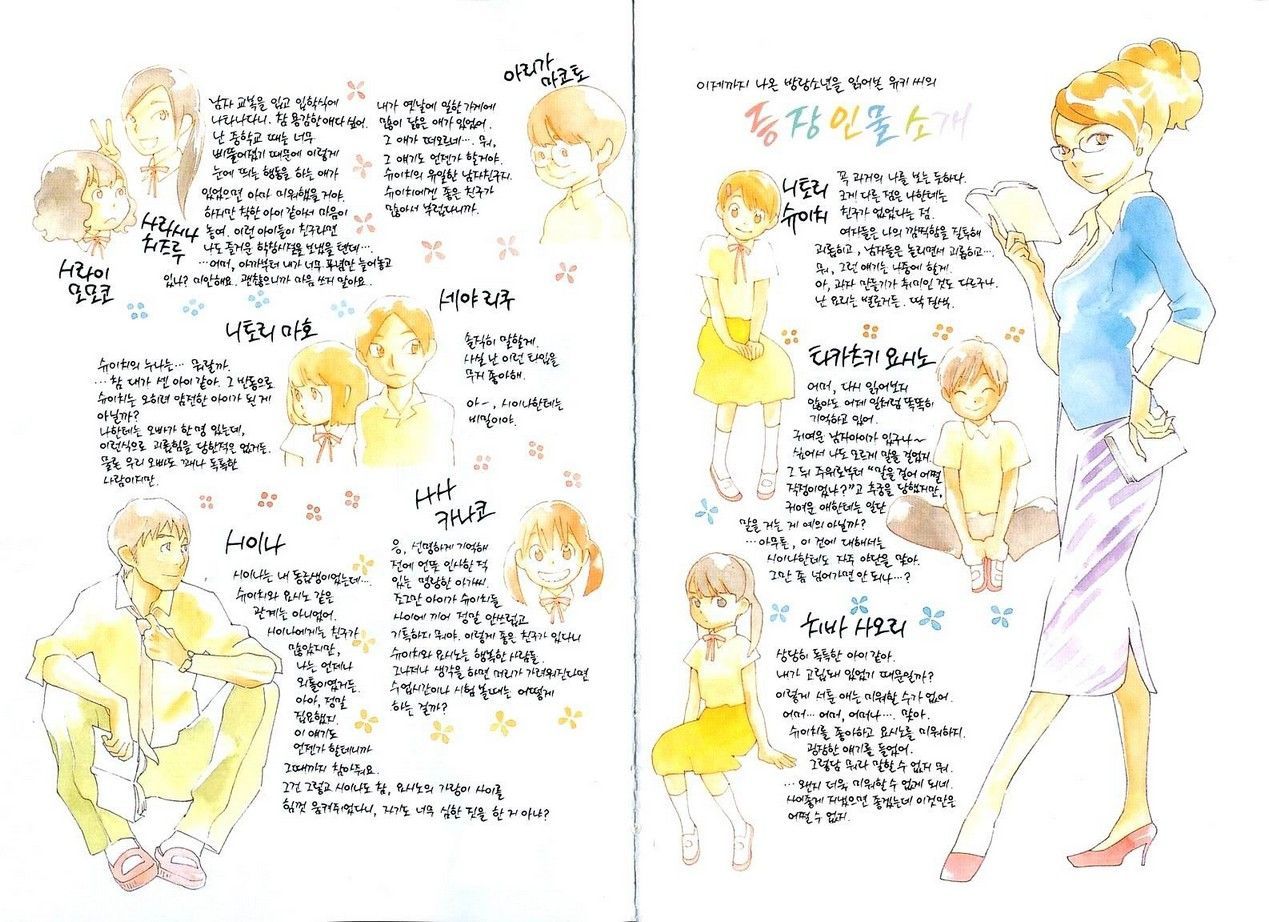 이제까지 나온 방랑소년을 읽어본 유키 씨의
등장인물소개
니토리
슈이치
꼭 과거의 나를 보는 듯하다.
크게 다른 점은 나한테는
친구가 없었다는 점.
여자들은 나의 깜찍함을 질투해
괴롭히고, 남자들은 놀리면서 괴롭히고….
뭐, 그런 얘기는 나중에 할게.
아, 과자 만들기가 취미인 것도 다르구나.
난 요리는 별로거든. 딱 질색.
타카츠키 요시노
어머, 다시 읽어보지
않아도 어제 일처럼 똑똑히
기억하고 있어.
귀여운 남자아이가 있구나~
싶어서 나도 모르게 말을 걸었지.
그 뒤 주위로부터 “말을 걸어 어쩔
작정이었냐?”고 추궁을 당했지만,
귀여운 애한테는 일단
말을 거는 게 예의 아닐까?
…아무튼, 이 건에 대해서는
시이나한테도 자주 야단을 맞아.
그만 좀 넘어가면 안 되나…?
치바 사오리
상당히 독특한 아이 같아.
내가 고립돼 있었기 때문일까?
이렇게 서툰 애는 미워할 수가 없어.
어머… 어머, 어머나…. 맞아.
슈이치를 좋아하고 요시노를 미워하지.
굉장한 얘기를 들었어.
그렇담 뭐라 말할 수 없지 뭐.
…왠지 더욱 미워할 수 없게 되네.
사이좋게 지냈으면 좋겠는데 이것만은
어쩔 수 없지.
아리가
마코토
내가 옛날에 일한 가게에
많이 닮은 애가 있었어.
그 애가 떠오르네…. 뭐,
그 얘기도 언젠가 할거야.
슈이치의 유일한 남자친구지.
슈이치에겐 좋은 친구가
많아서 부럽다니까.
사라시나
치즈루
시라이
모모코
남자 교복을 입고 입학식에
나타나다니. 참 용감한 애다 싶어.
난 중학교 때는 너무
삐뚤어졌기 때문에 이렇게
눈에 띄는 행동을 하는 애가
있었으면 아마 미워했을 거야.
하지만 착한 아이 같아서 마음이
놓여. 이런 아이들이 친구라면
나도 즐거운 학창시절을 보냈을 텐데….
…어머, 아까부터 내가 너무 푸념만 늘어놓고
있나? 미안해요. 괜찮으니까 마음 쓰지 말아요.
세야 리쿠
솔직히 말할게.
사실 난 이런 타입을
무지 좋아해.
아-, 시이나한테는
비밀이야.
니토리 마호
슈이치의 누나는… 뭐랄까.
…참 대가 센 아이 같아. 그 반동으로
슈이치는 오히려 얌전한 아이가 된 게
아닐까?
나한테는 오빠가 한 명 있는데,
이런식으로 괴롭힘을 당한적은 없거든.
물론 우리 오빠도 꽤나 독특한
사람이지만.
사사
카나코
응, 선명하게 기억해
전에 언뜻 인사한 적
있는 명랑한 아가씨.
조그만 아이가 슈이치들
사이에 끼어 정말 안쓰럽고
기특하지 뭐야. 이렇게 좋은 친구가 있다니
슈이치와 요시노는 행복한 사람들.
그나저나 생각을 하면 머리가 가려워진다면
수업시간이나 시험 볼때는 어떻게
하는 걸까?
시이나
시이나는 내 동급생이었는데…
슈이치와 요시노 같은
관계는 아니었어.
시이나에게는 친구가
많았지만,
나는 언제나
외톨이였거든.
아아, 정말
집요했지.
이 얘기도
언젠가 할테니까
그때까지 참아줘요.
그건 그렇고 시이나도 참, 요시노의 가랑이 사이를
힘껏 움켜쥐었다니, 자기도 너무 심한 짓을 한 거 아냐?